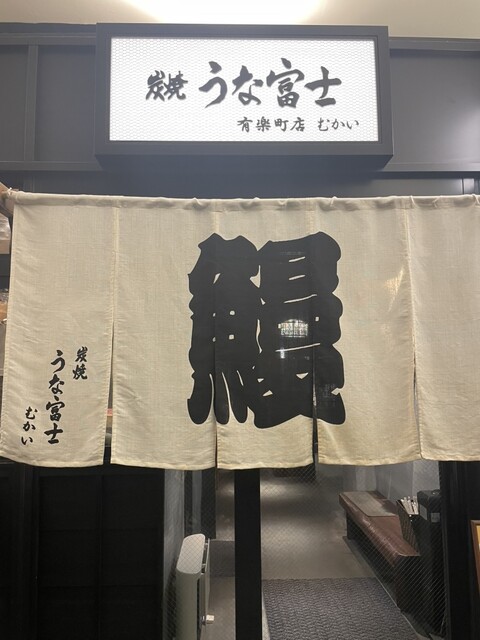 炭焼 うな富士
有楽町店 むかい
鰻
炭焼
うな富士
むかい